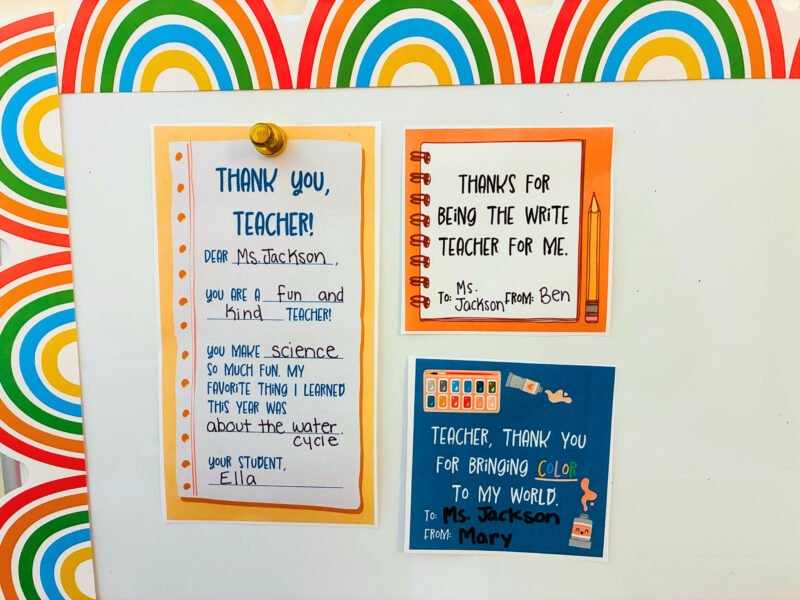 THANK YOU,
TEACHER!
DEAR Ms. Jackson,
YOU ARE A fun and
kind TEACHER!
YOU MAKE science
SO MUCH FUN. MY
FAVORITE THING I LEARNED
THIS YEAR WAS
about the water.
cycle
YOUR STUDENT,
Ella
THANKS FOR
BEING THE WRITE
TEACHER FOR ME.
TO: Ms.
Jackson FROM: Ben
TEACHER, THANK YOU
FOR BRINGING COLOR
TO MY WORLD.
TO: Ms. Jackson
FROM: Mary